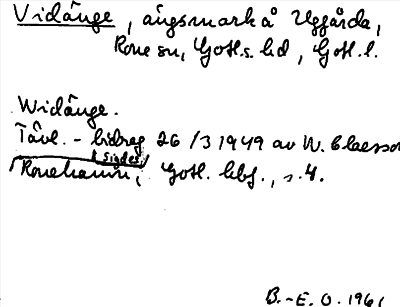 Vidänge, ängsmark å Uggårda,
Rone sn, Gotl.s. hd, Gotl. l.
Widänge.
Tävl. - bidrag 26/3 1949 av W. Claesson
sigdes
Ronehamn, Gotl. lbf., s. 4.
B.-E. O. 1961